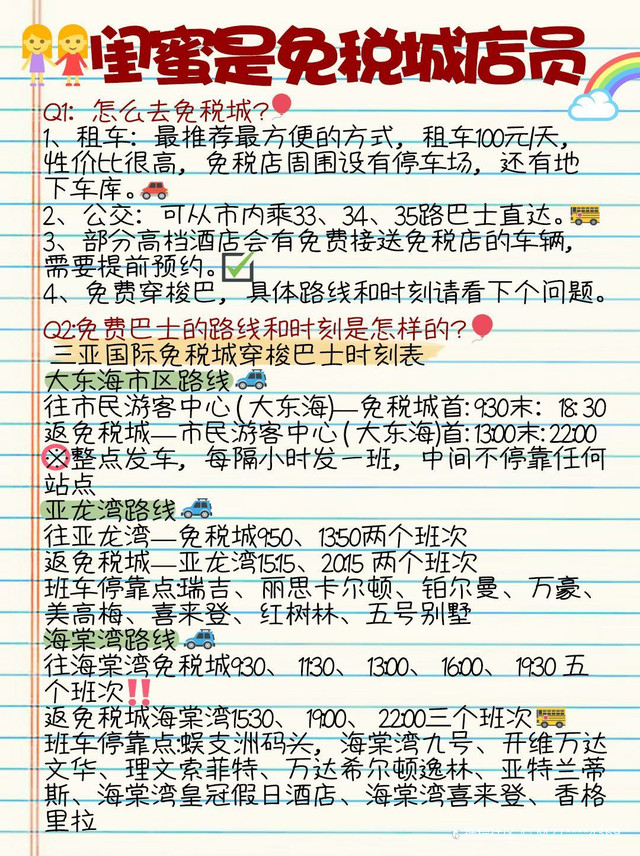 闺蜜是免税城店员
Q1：怎么去免税城？
1、租车：最推荐最方便的方式，租车100元/天，
性价比很高，免税店周围设有停车场，还有地
下车库。
2、公交：可从市内乘33、34、35路巴士直达。
3、部分高档酒店会有免费接送免税店的车辆，
需要提前预约。
4、免费穿梭巴，具体路线和时刻请看下个问题。
Q2:免费巴士的路线和时刻是怎样的？
三亚国际免税城穿梭巴士时刻表
大东海市区路线
往市民游客中心（大东海)—免税城首: 9:30末：18: 30
返免税城—市民游客中心（大东海)首: 13:00末: 22:00
※整点发车，每隔小时发一班，中间不停靠任何
站点
亚龙湾路线
往亚龙湾—免税城9:50、13:50两个班次
返免税城—亚龙湾15:15、20:15 两个班次
班车停靠点瑞吉、丽思卡尔顿、铂尔曼、万豪、
美高梅、喜来登、红树林、五号别墅
海棠湾路线
往海棠湾免税城9:30、 11:30、 13:00、 16:00、 19:30 五
个班次‼️
返免税城海棠湾15:30、 19:00、 22:00三个班次
班车停靠点:蜈支洲码头，海棠湾九号、开维万达
文华、理文索菲特、万达希尔顿逸林、亚特兰蒂
斯、海棠湾皇冠假日酒店、海棠湾喜来登、香格
里拉